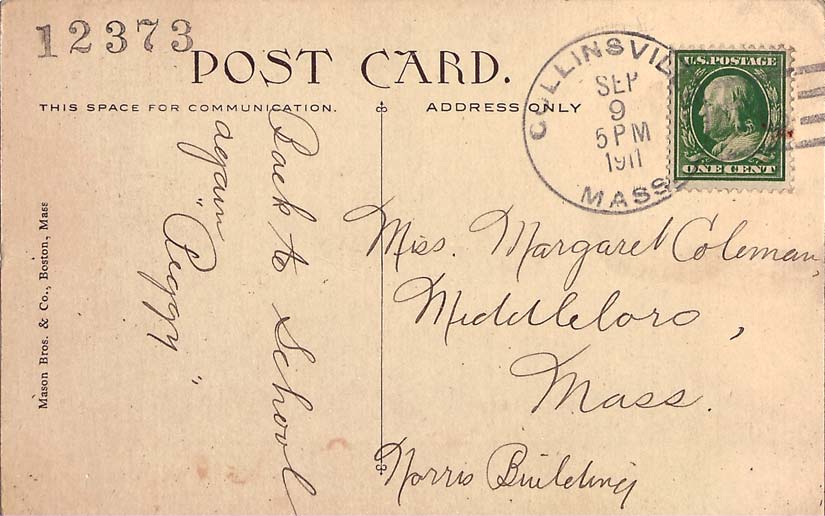 12373
POST CARD.
THIS SPACE FOR COMMUNICATION.
ADDRESS ONLY
COLLINSVILLE
SEP
9
5 PM
1911
MASS
U.S. POSTAGE
ONE CENT
Back to School
again
"Peggy"
Miss. Margaret Coleman,
Middleboro,
Mass.
Norris Building
Mason Bros. & Co., Boston, Mass